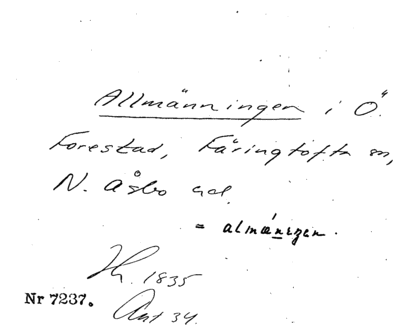 Allmänningen i Ö.
Forestad, Färingtofta sn,
N. Åsbo hd.
= almäningen.
1835
Nr 7237. Ant 34.